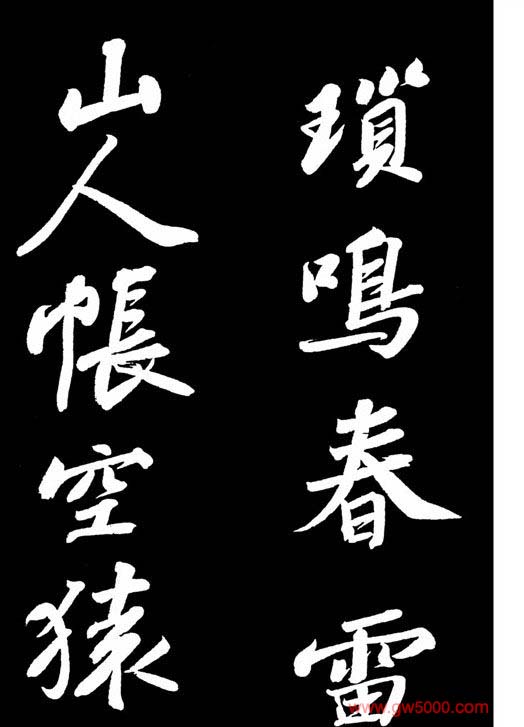 瑣鳴春雷
山人帳空猿
www.gw5000.com